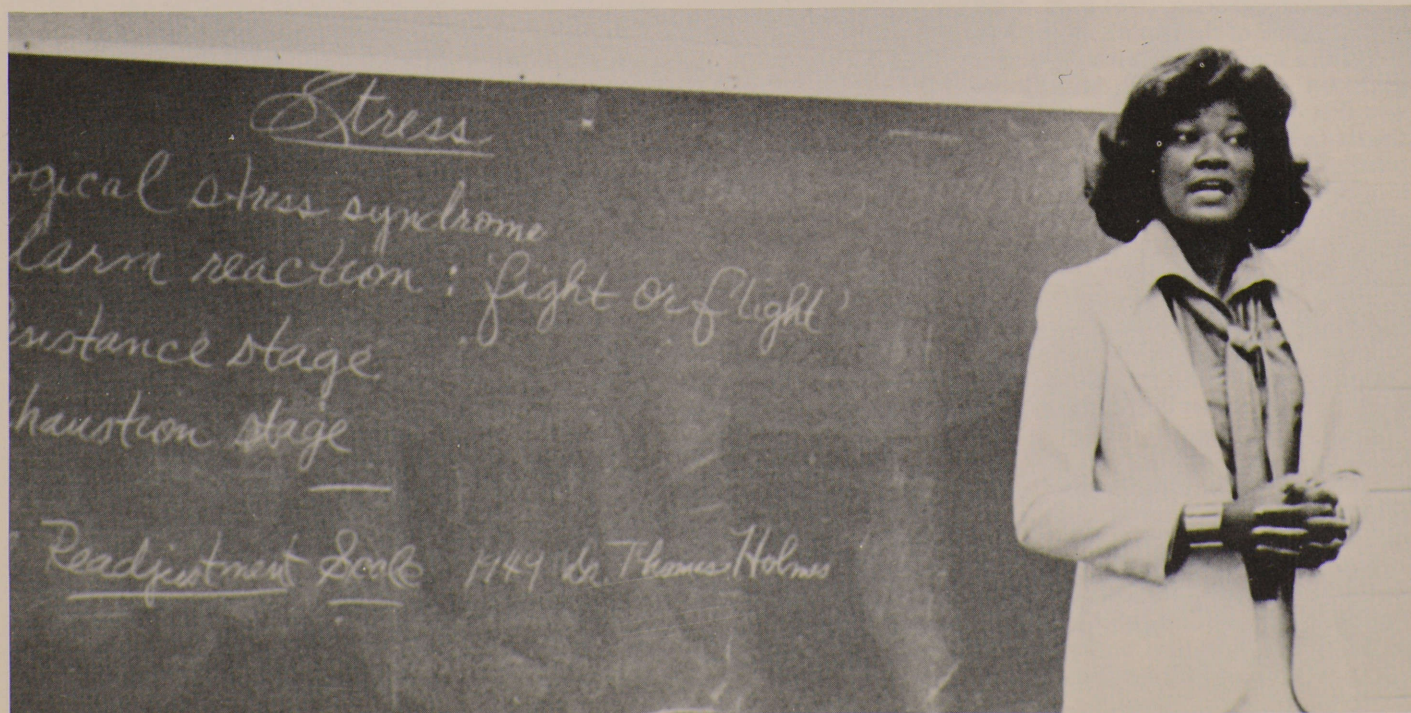 Stress
ogical stress syndrome
larm reaction : 'fight or flight'
esistance stage
haustion stage
Readjustment Scale 1949 Dr Thomas Holmes